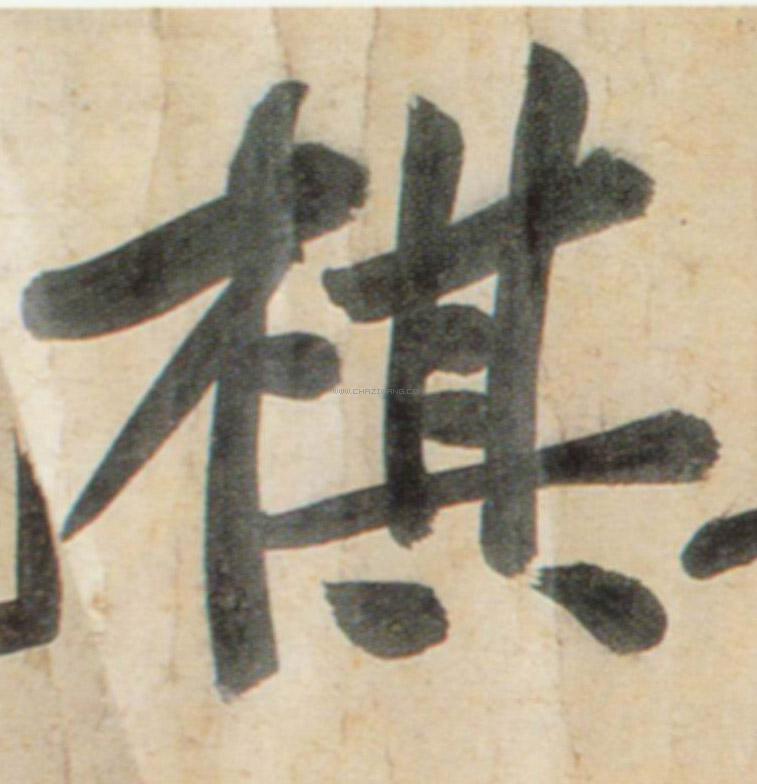 棋
WWW.CHAZIDIANG.COM